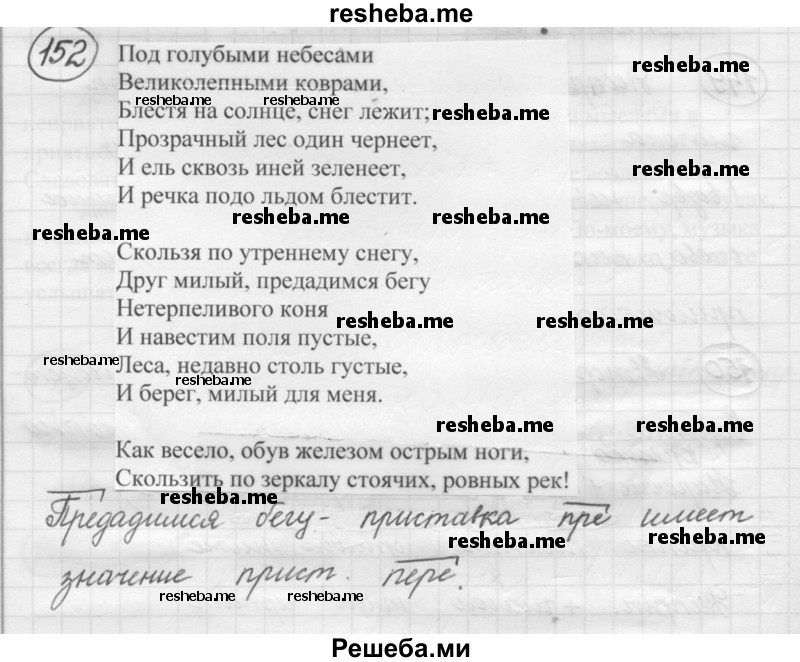 resheba.me
152
Под голубыми небесами
resheba.me
Великолепными коврами,
resheba.me resheba.me
Блестя на солнце, снег лежит; resheba.me
Прозрачный лес один чернеет,
И ель сквозь иней зеленеет, resheba.me
И речка подо льдом блестит.
resheba.me resheba.me
resheba.me
Скользя по утреннему снегу,
Друг милый, предадимся бегу
Нетерпеливого коня
resheba.me resheba.me
И навестим поля пустые,
resheba.me Леса, недавно столь густые,
resheba.me
И берег, милый для меня.
resheba.me resheba.me
Как весело, обув железом острым ноги,
Скользить по зеркалу стоячих, ровных рек!
resheba.me
Предадимся бегу - приставка пре имеет
resheba.me resheba.me
значение прист. пере.
resheba.me
Решеба.ми